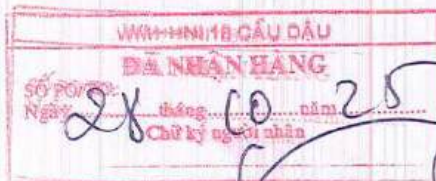 WM+ HNI 18 CẦU DẬU
ĐÃ NHẬN HÀNG
SỐ PO/
Ngày 28 tháng 10 năm 25
Chữ ký người nhân